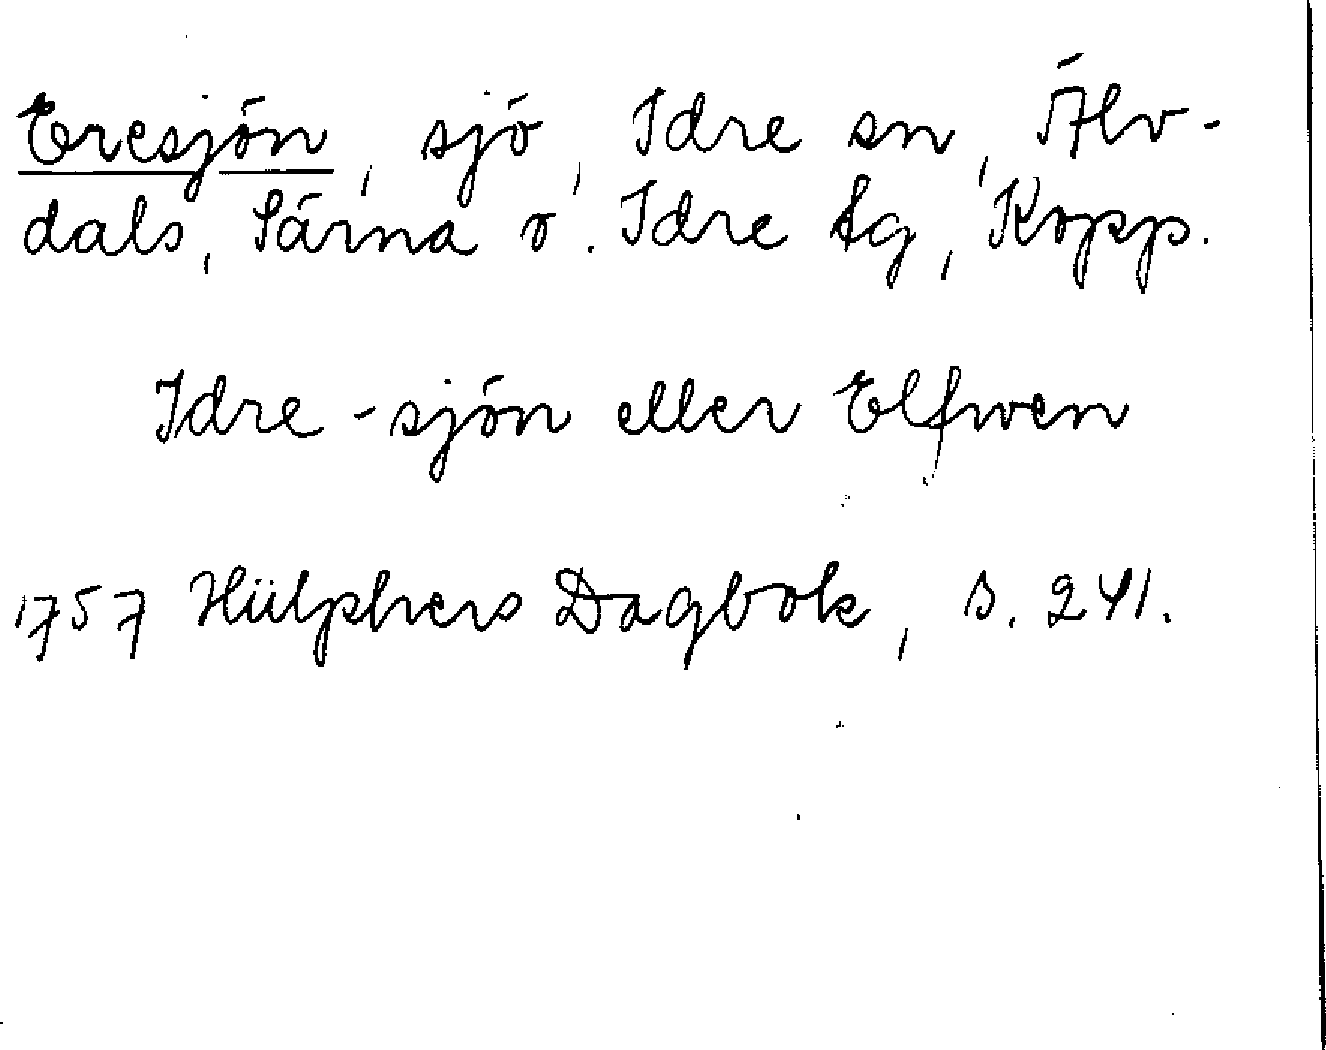 Eresjön, sjö, Idre sn, Älv-
dals, Särna o. Idre tg, Kopp.
Idre-sjön eller Elfwen
1757 Hülphers Dagbok, s. 241.